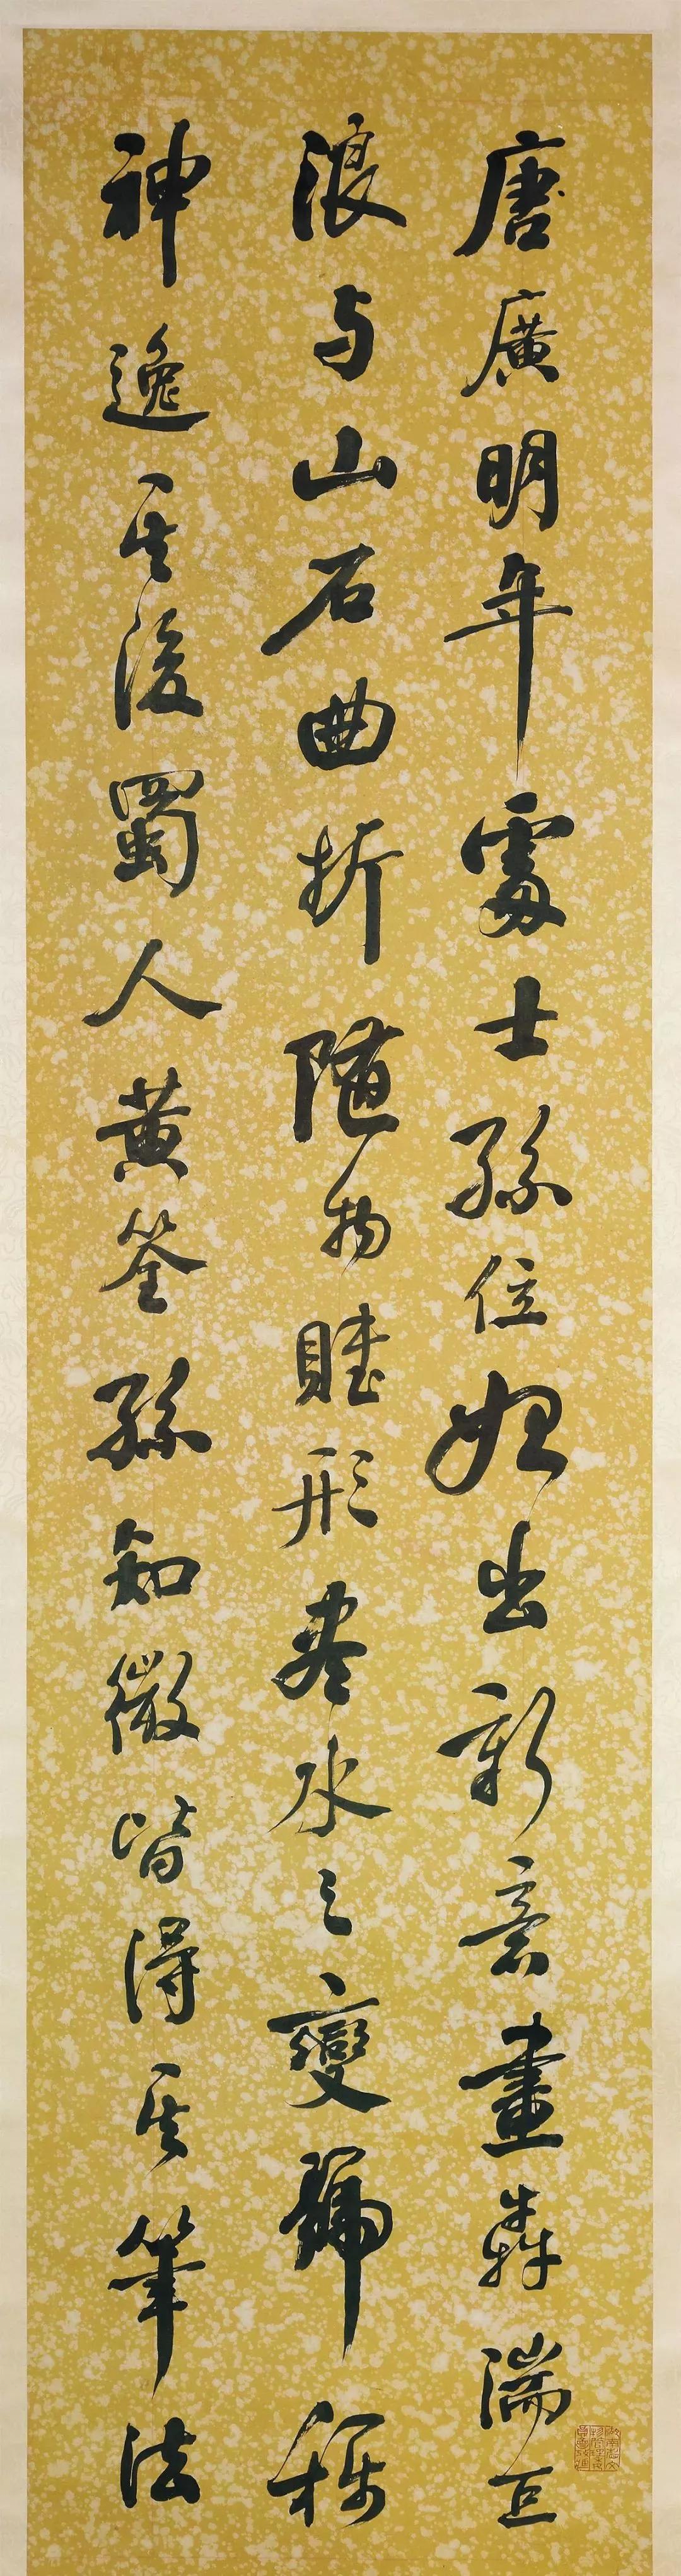 唐廣明年處士孫位始出新意畫犇湍巨
浪与山石曲折随物賦形尽水之變號稱
神逸其後蜀人黄筌孫知微皆得其筆法